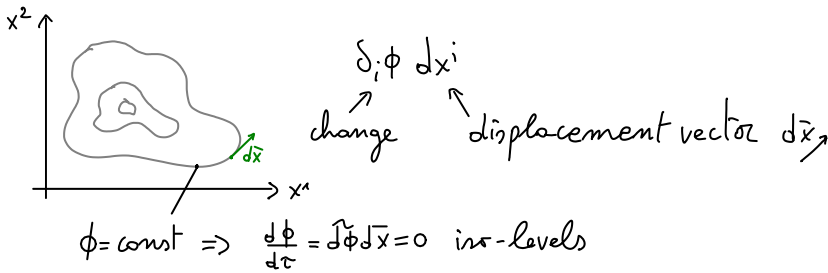 x²
δ,ᵢϕ dxⁱ
change displacement vector dx̄
dx̄
x¹
ϕ = const => dϕ/dτ = d̃ϕ dx̄ = 0 iso-levels